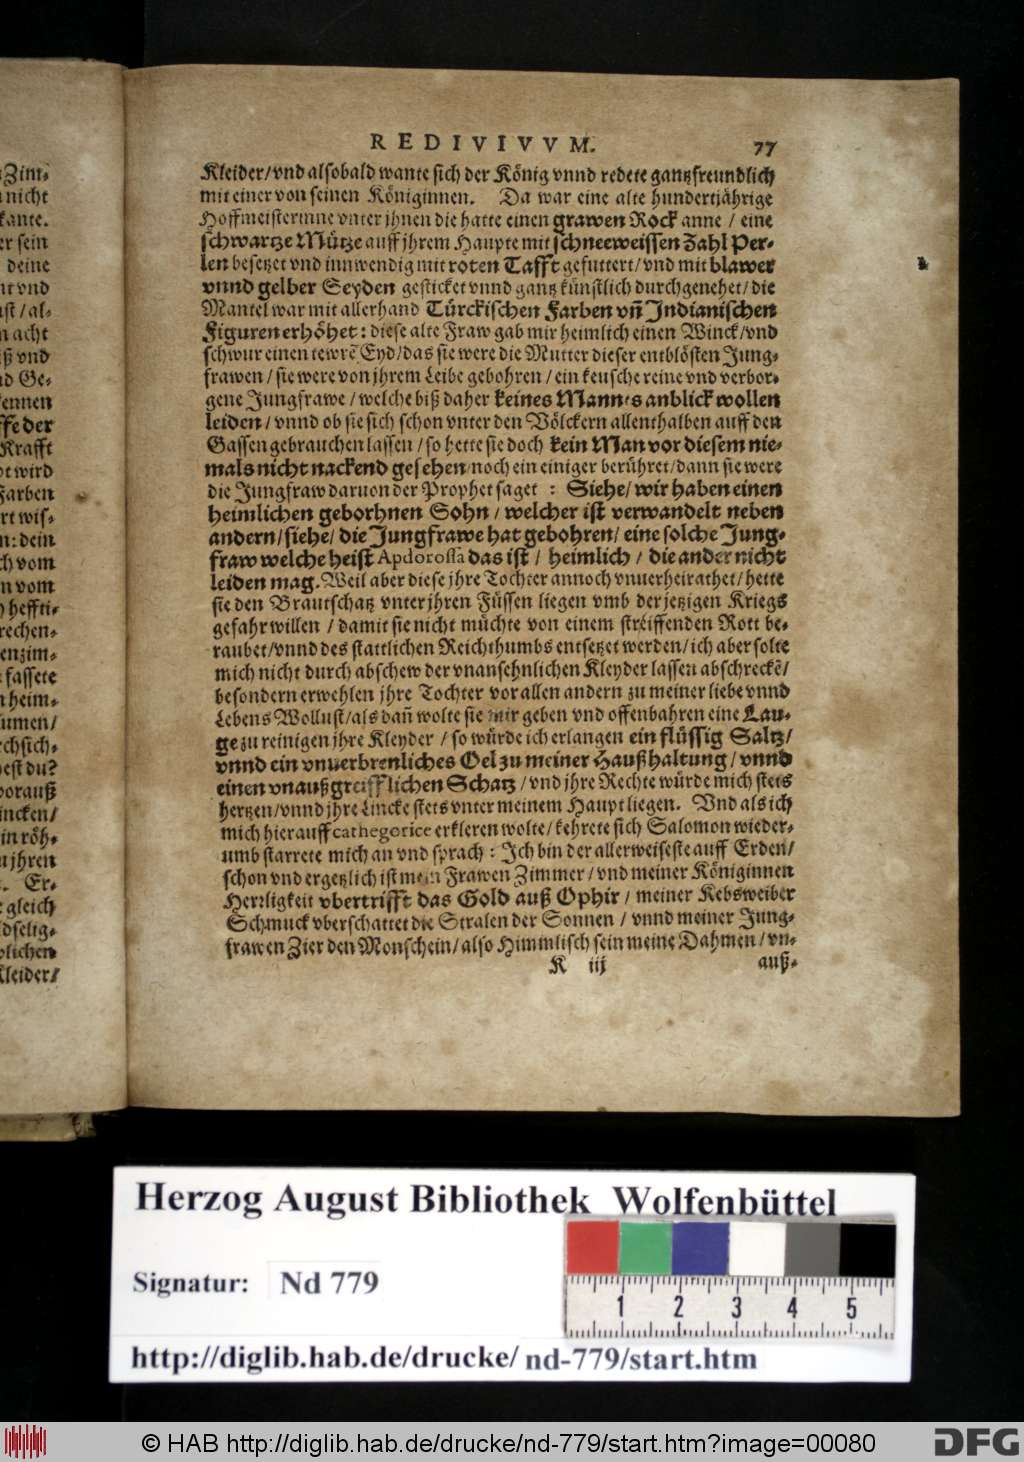 REDIVIVVM. 77
Kleider/vnd alsobald wante sich der König vnnd redete gantz freundlich
mit einer von seinen Königinnen. Da war eine alte hundertjährige
Hoffmeisterinne vnter jhnen die hatte einen grawen Rock anne / eine
schwartze Mütze auff jhrem Haupte mit schneeweissen Zahl Per-
len besetzet vnd innwendig mit roten Tafft gefuttert/vnd mit blawer
vnnd gelber Seyden gesticket vnnd gantz künstlich durchgenehet/die
Mantel war mit allerhand Türckischen Farben vñ Indianischen
Figuren erhöhet: diese alte Fraw gab mir heimlich einen Winck/vnd
schwur einen tewrẽ Eyd/das sie were die Mutter dieser entblösten Jung-
frawen/sie were von jhrem Leibe gebohren/ein keusche reine vnd verbor-
gene Jungfrawe/welche biß daher keines Manns anblick wollen
leiden/vnnd ob sie sich schon vnter den Völckern allenthalben auff den
Gassen gebrauchen lassen/so hette sie doch kein Man vor diesem nie-
mals nicht nackend gesehen/noch ein einiger berühret/dann sie were
die Jungfraw daruon der Prophet saget : Siehe/wir haben einen
heimlichen geborhnen Sohn/welcher ist verwandelt neben
andern/siehe/die Jungfrawe hat gebohren/eine solche Jung-
fraw welche heist Apdorossa das ist/heimlich/die ander nicht
leiden mag. Weil aber diese jhre Tochter annoch vnuerheirathet/hette
sie den Brautschatz vnter jhren Füssen liegen vmb der jetzigen Kriegs
gefahr willen/damit sie nicht müchte von einem streiffenden Rott be-
raubet/vnnd des stattlichen Reichthumbs entsetzet werden/ich aber solte
mich nicht durch abschew der vnansehnlichen Kleyder lassen abschreckẽ/
besondern erwehlen jhre Tochter vor allen andern zu meiner liebe vnnd
Lebens Wollust/als dañ wolte sie mir geben vnd offenbahren eine Lau-
ge zu reinigen jhre Kleyder/so würde ich erlangen ein flüssig Saltz/
vnnd ein vnuerbrenliches Oel zu meiner Haußhaltung/vnnd
einen vnaußgreifflichen Schatz/vnd jhre Rechte würde mich stets
hertzen/vnnd jhre Lincke stets vnter meinem Haupt liegen. Vnd als ich
mich hierauff cathegorice erkleren wolte/kehrete sich Salomon wieder-
umb starrete mich an vnd sprach: Ich bin der allerweiseste auff Erden/
schon vnd ergetzlich ist mein Frawen Zimmer/vnd meiner Königinnen
Herrligkeit vbertrifft das Gold auß Ophir/meiner Kebsweiber
Schmuck vberschattet die Stralen der Sonnen/vnnd meiner Jung-
frawen Zier den Monschein/also Himmlisch sein meine Dahmen/vn-
K iij auß-
Zim-
nicht
kante.
er sein
deine
vnd
ust/al-
n acht
iß vnd
nd Ge-
ennen
ffe der
Krafft
t wird
Farben
rt wis-
n: dein
ch vom
n vom
heffti-
rechen-
enzim-
fassete
heim-
umen/
chsich-
est du?
orauß
incken/
in röh-
jhren
. Er-
gleich
dselig-
blichen
Kleider/
Herzog August Bibliothek Wolfenbüttel
Signatur: Nd 779
1 2 3 4 5
http://diglib.hab.de/drucke/ nd-779/start.htm
© HAB http://diglib.hab.de/drucke/nd-779/start.htm?image=00080
DFG